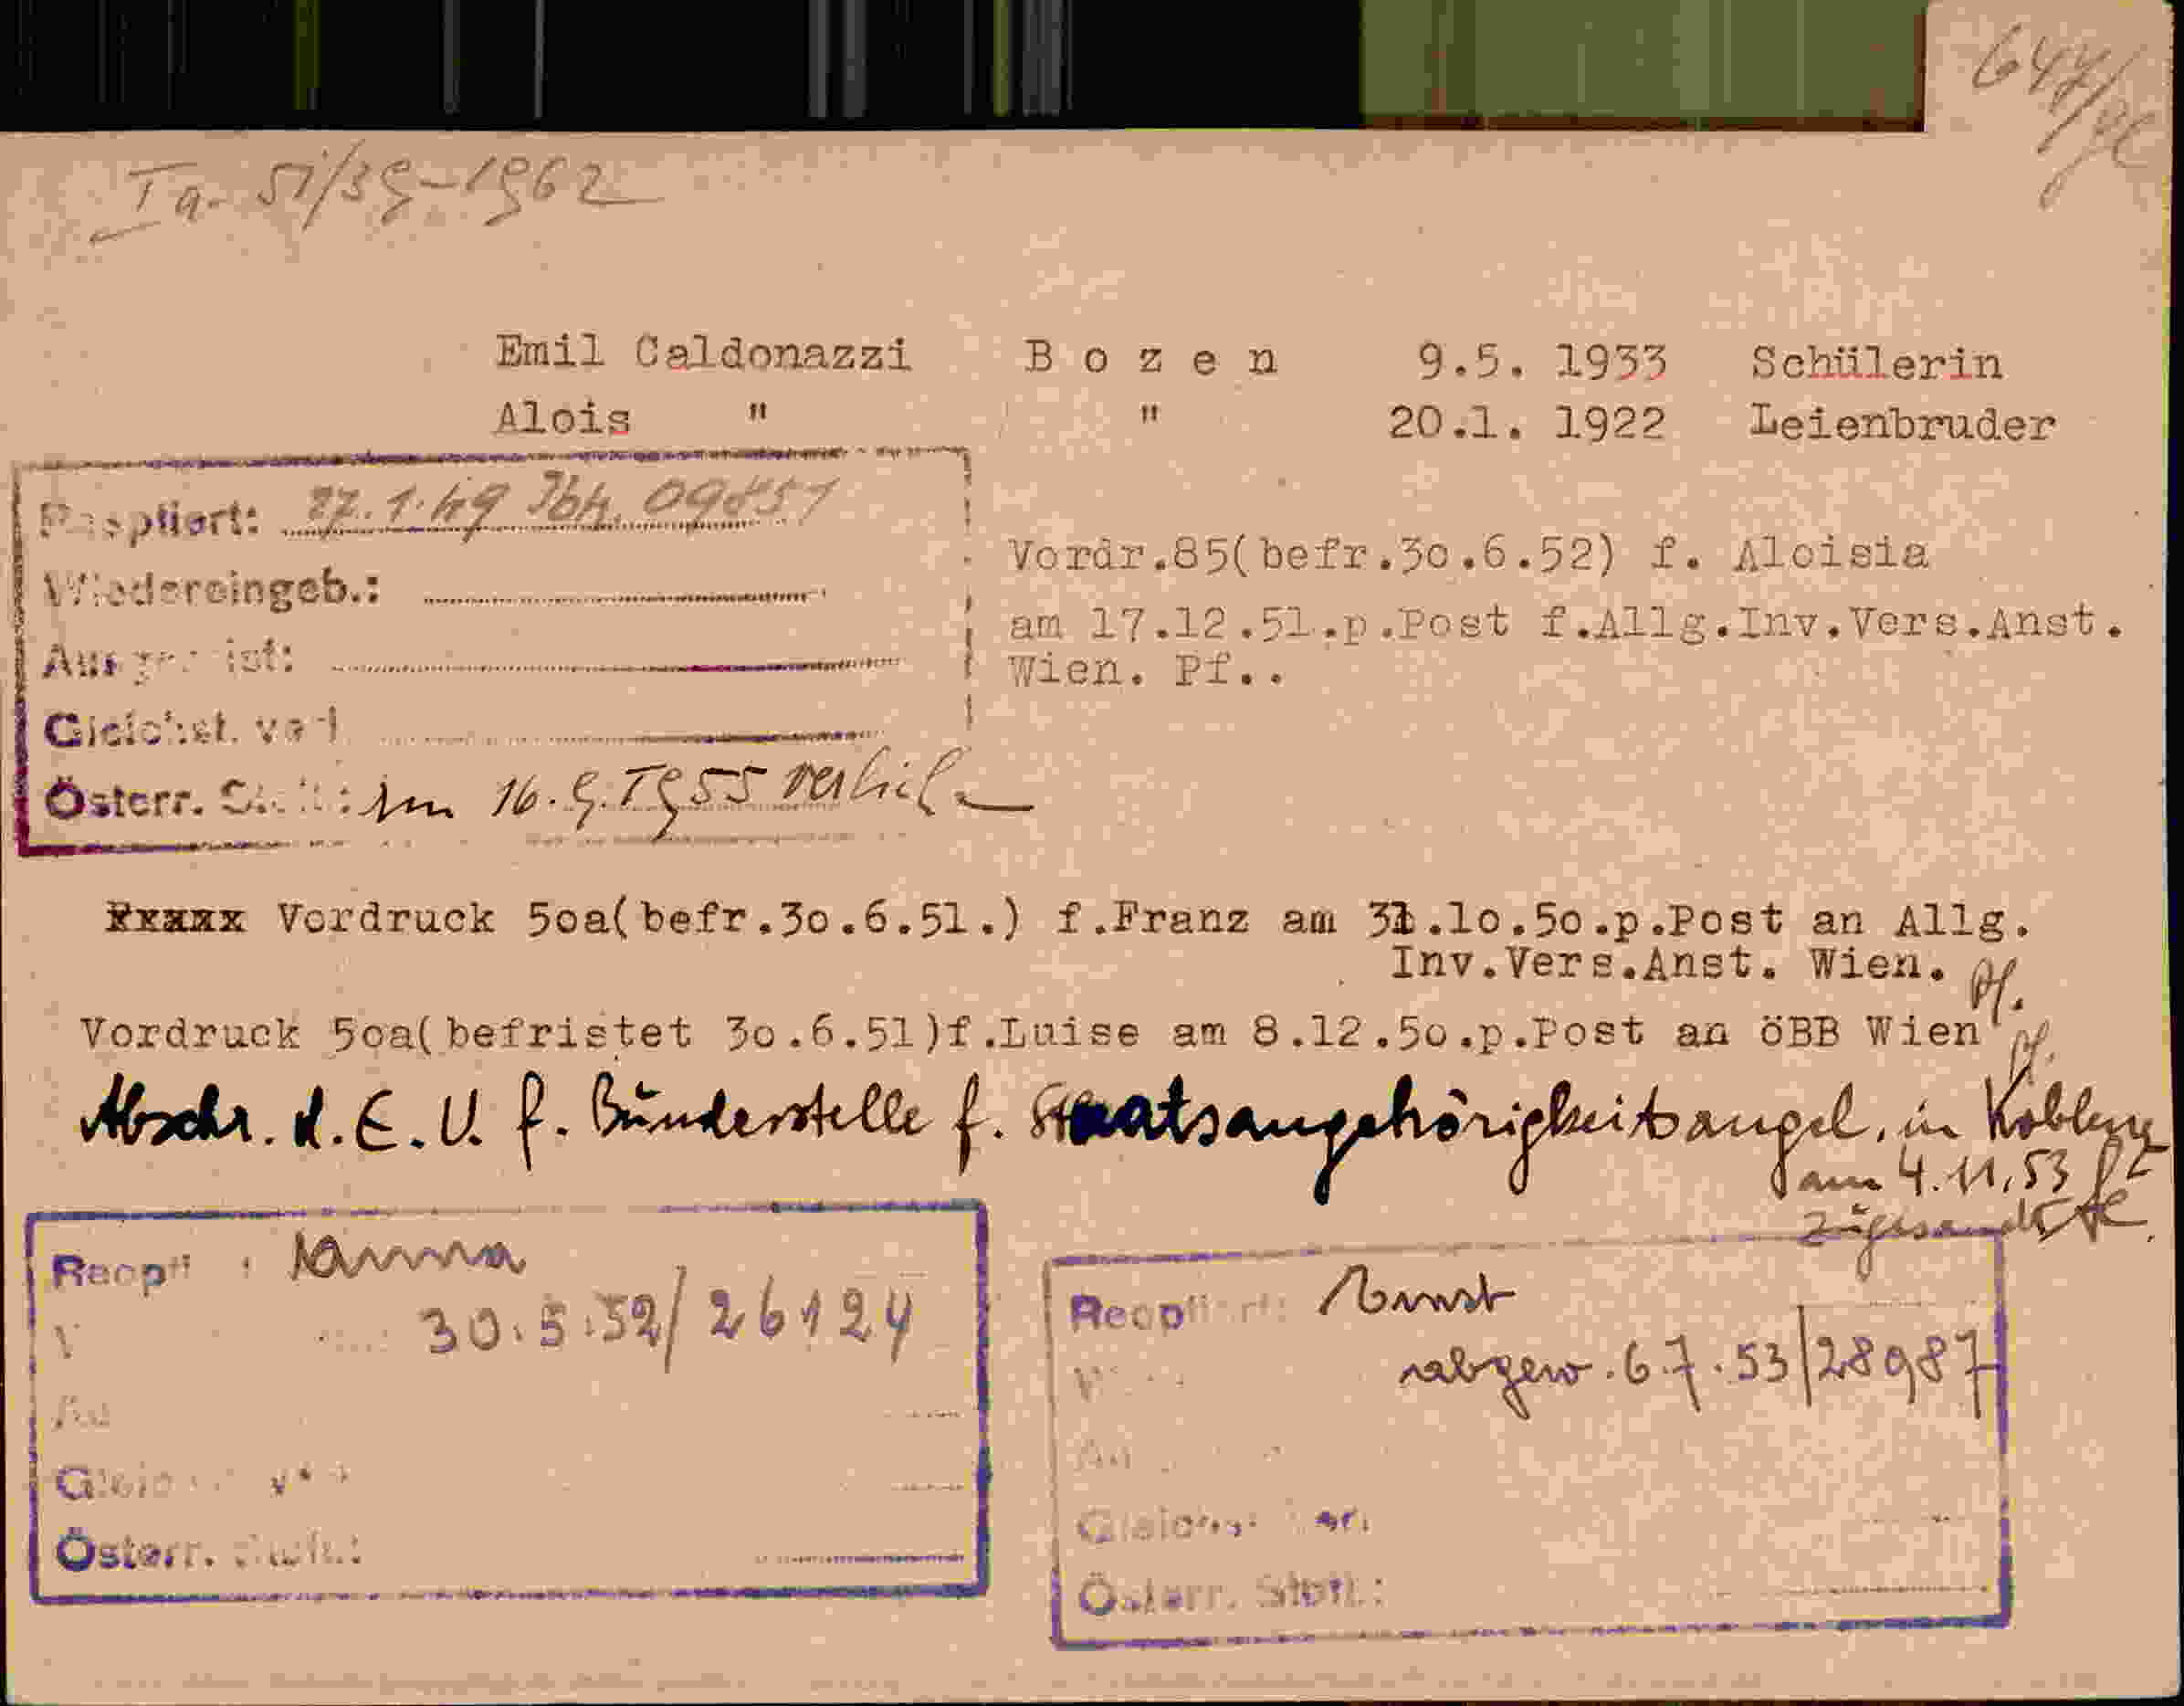 647/
Ia- 51/39-1962
Emil Caldonazzi B o z e n 9.5. 1933 Schülerin
Alois " " 20.1. 1922 Leienbruder
Reoptiert: 27.1.49 Zbk. 09851
Wiedereingeb.:
Gleichst. verl.
Österr. Stbft.: am 16.9.1955 verliehen
Vordr.85(befr.30.6.52) f. Aloisia
am 17.12.51.p.Post f.Allg.Inv.Vers.Anst.
Wien. Pf..
Vordruck 50a(befr.30.6.51.) f.Franz am 31.10.50.p.Post an Allg.
Inv.Vers.Anst. Wien. Pf.
Vordruck 50a(befristet 30.6.51)f.Luise am 8.12.50.p.Post an öBB Wien Pf.
Abschr. d. E. U. f. Bundesstelle f. Staatsangehörigkeitsangel. in Koblenz
am 4.11.53
zugesandt
Reoptiert: Anna
30.5.52/26124
Gleichst. verl.
Österr. Stbft.:
Reoptiert: Ernst
abgew. 6.7.53/28987
Gleichst. verl.
Österr. Stbft.: